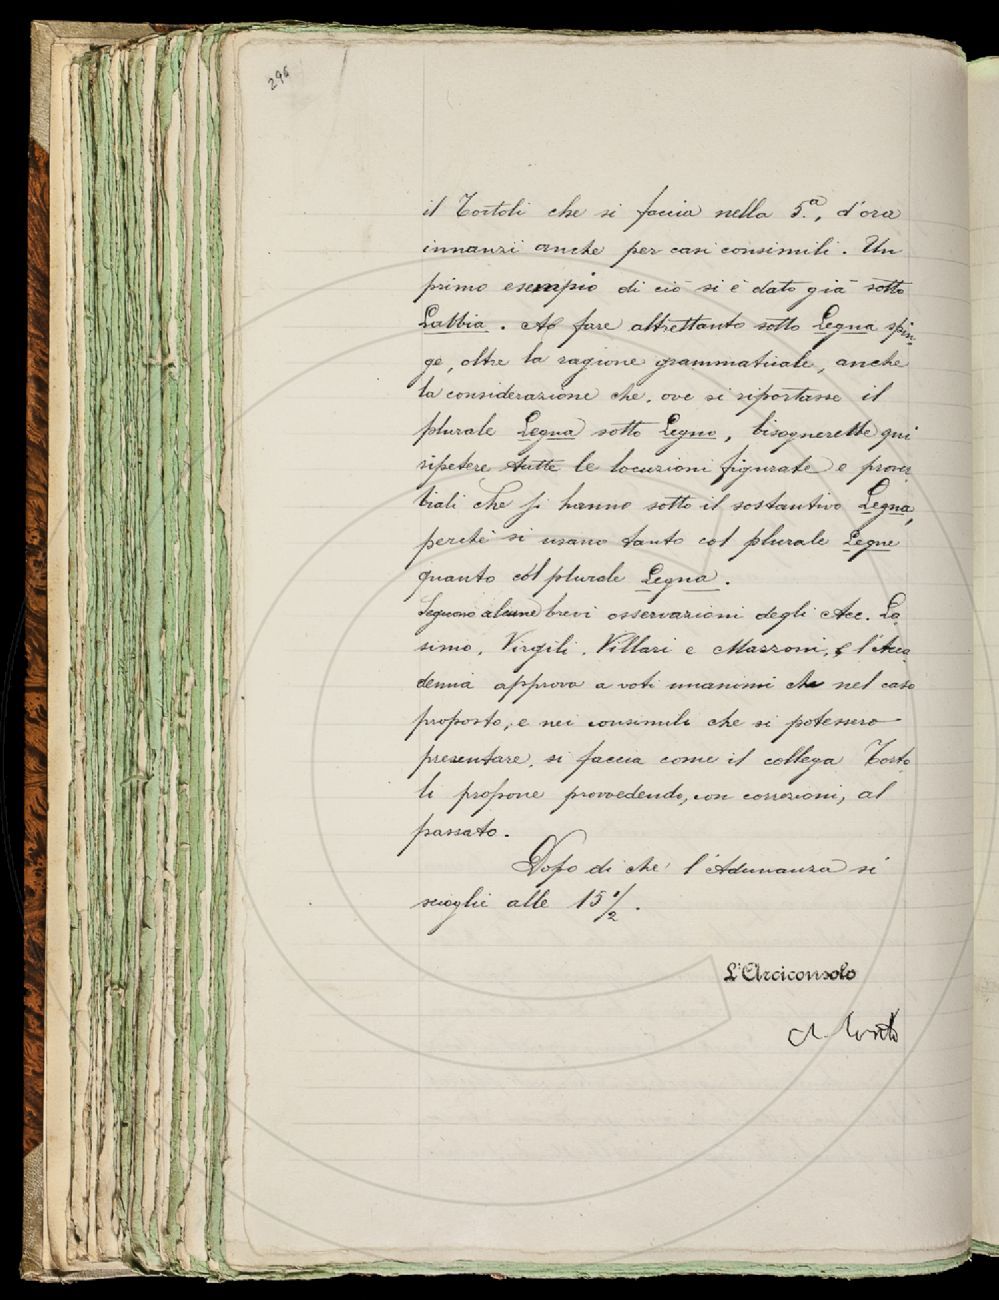 296
il Tortoli che si faccia nella 5.ª, d'ora
innanzi anche per casi consimili. Un
primo esempio di ciò si è dato già sotto
Labbia. A fare altrettanto sotto Legna spin-
ge, oltre la ragione grammaticale, anche
la considerazione che, ove si riportasse il
plurale Legna sotto Legno, bisognerebbe qui
ripetere tutte le locuzioni figurate e prover
biali che si hanno sotto il sostantivo Legna,
perchè si usano tanto col plurale Legne
quanto col plurale Legna.
Seguono alcune brevi osservazioni degli Acc. La
simo, Virgili, Villari e Mazzoni, e l'Acca
demia approva a voti unanimi che nel caso
proposto, e nei consimili che si potessero
presentare, si faccia come il collega Torto
li propone provvedendo, con correzioni, al
passato.
Dopo di che l'Adunanza si
scioglie alle 15 1/2.
L'Arciconsolo